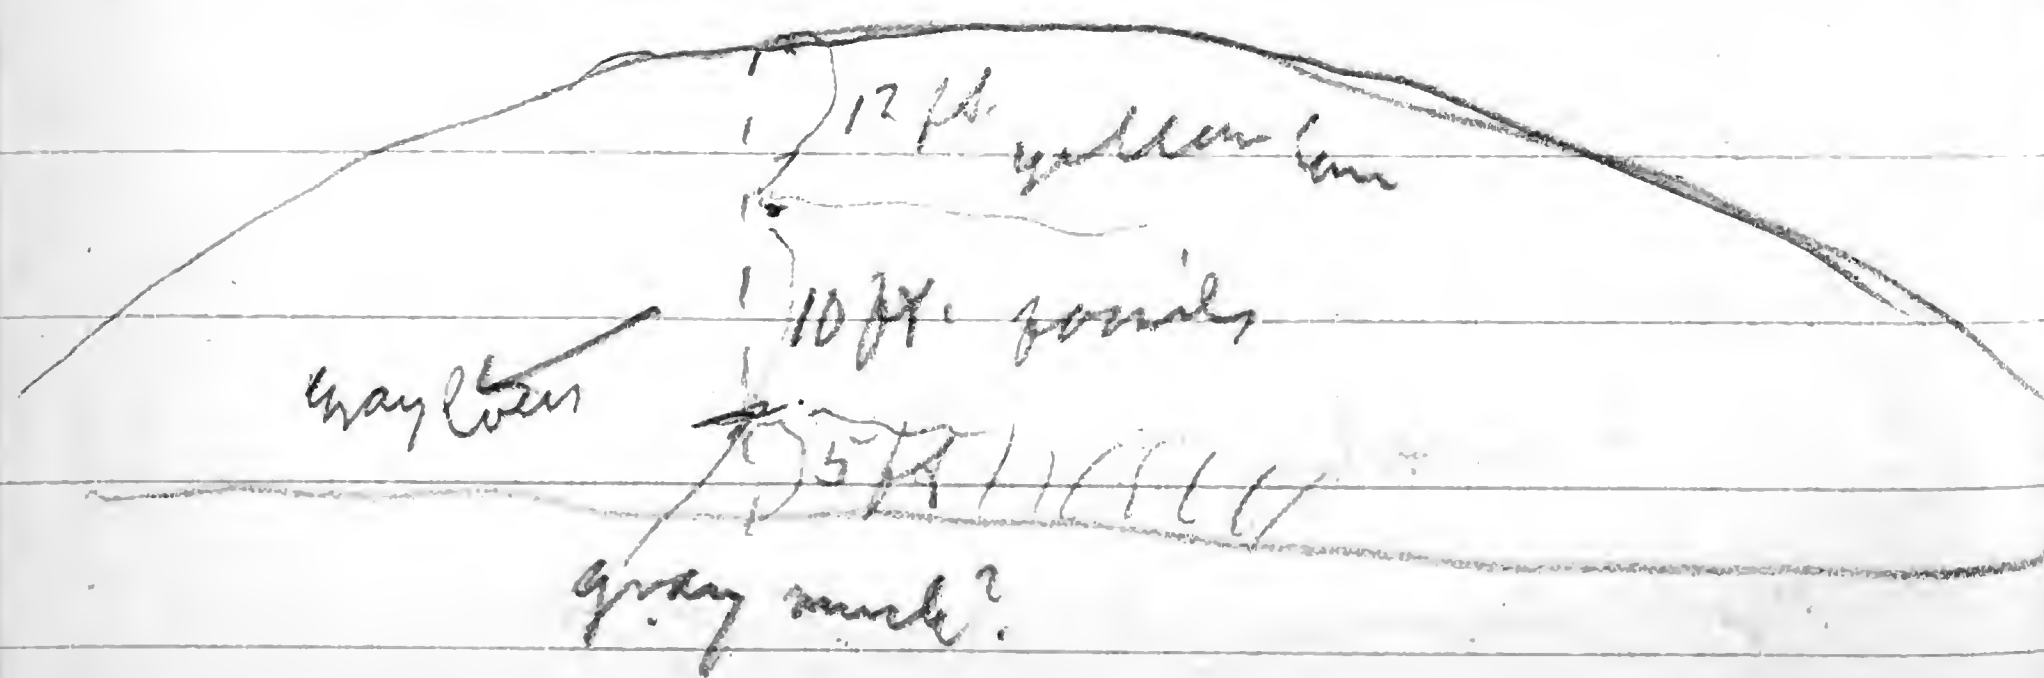 12 ft.
yellow
10 ft. fossils
gray loess
5 ft
gray muck?